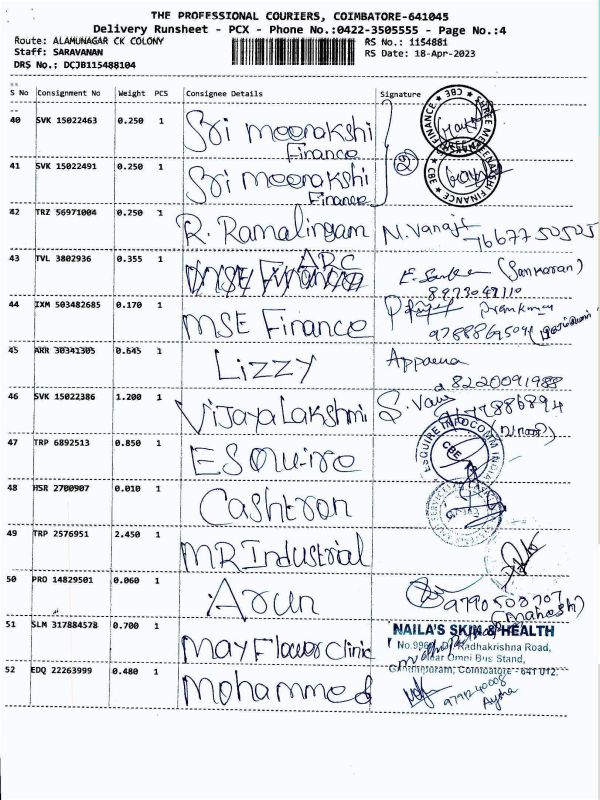 THE PROFESSIONAL COURIERS, COIMBATORE-641045
Delivery Runsheet - PCX - Phone No.:0422-3505555 - Page No.:4
Route: ALAMUNAGAR CK COLONY
RS No.: 1154881
Staff: SARAVANAN
RS Date: 18-Apr-2023
DRS No.: DCJB115488104
S No Consignment No Weight PCS Consignee Details Signature
40 SVK 15022463 0.250 1 Sri meenakshi
Finance
41 SVK 15022491 0.250 1 Sri meenakshi
Finance
42 TRZ 56971004 0.250 1 R. Ramalingam N. Vanaji
7667750505
43 TVL 3802936 0.355 1 ARC
(Sankaran)
8973049110
44 IXM 503482685 0.170 1 MSE Finance Premkumar
45 ARR 30341305 0.645 1 Lizzy Appaena
8220091988
46 SVK 15022386 1.200 1 Vijaya Lakshmi
47 TRP 6892513 0.850 1 ESquire
ESQUIRE INFOCOMM INDIA
CBE
48 HSR 2700907 0.010 1 Cashtron
49 TRP 2576951 2.450 1 MR Industrial
50 PRO 14829501 0.060 1 Arun
9790508707
(Mahesh)
51 SLM 317884578 0.700 1 May Flower clinic
NAILA'S SKIN & HEALTH
Radhakrishna Road,
Near Omni Bus Stand,
Gandhipuram, Coimbatore - 641 012.
52 EDQ 22263999 0.480 1 Mohammed
9791240008
Aysha